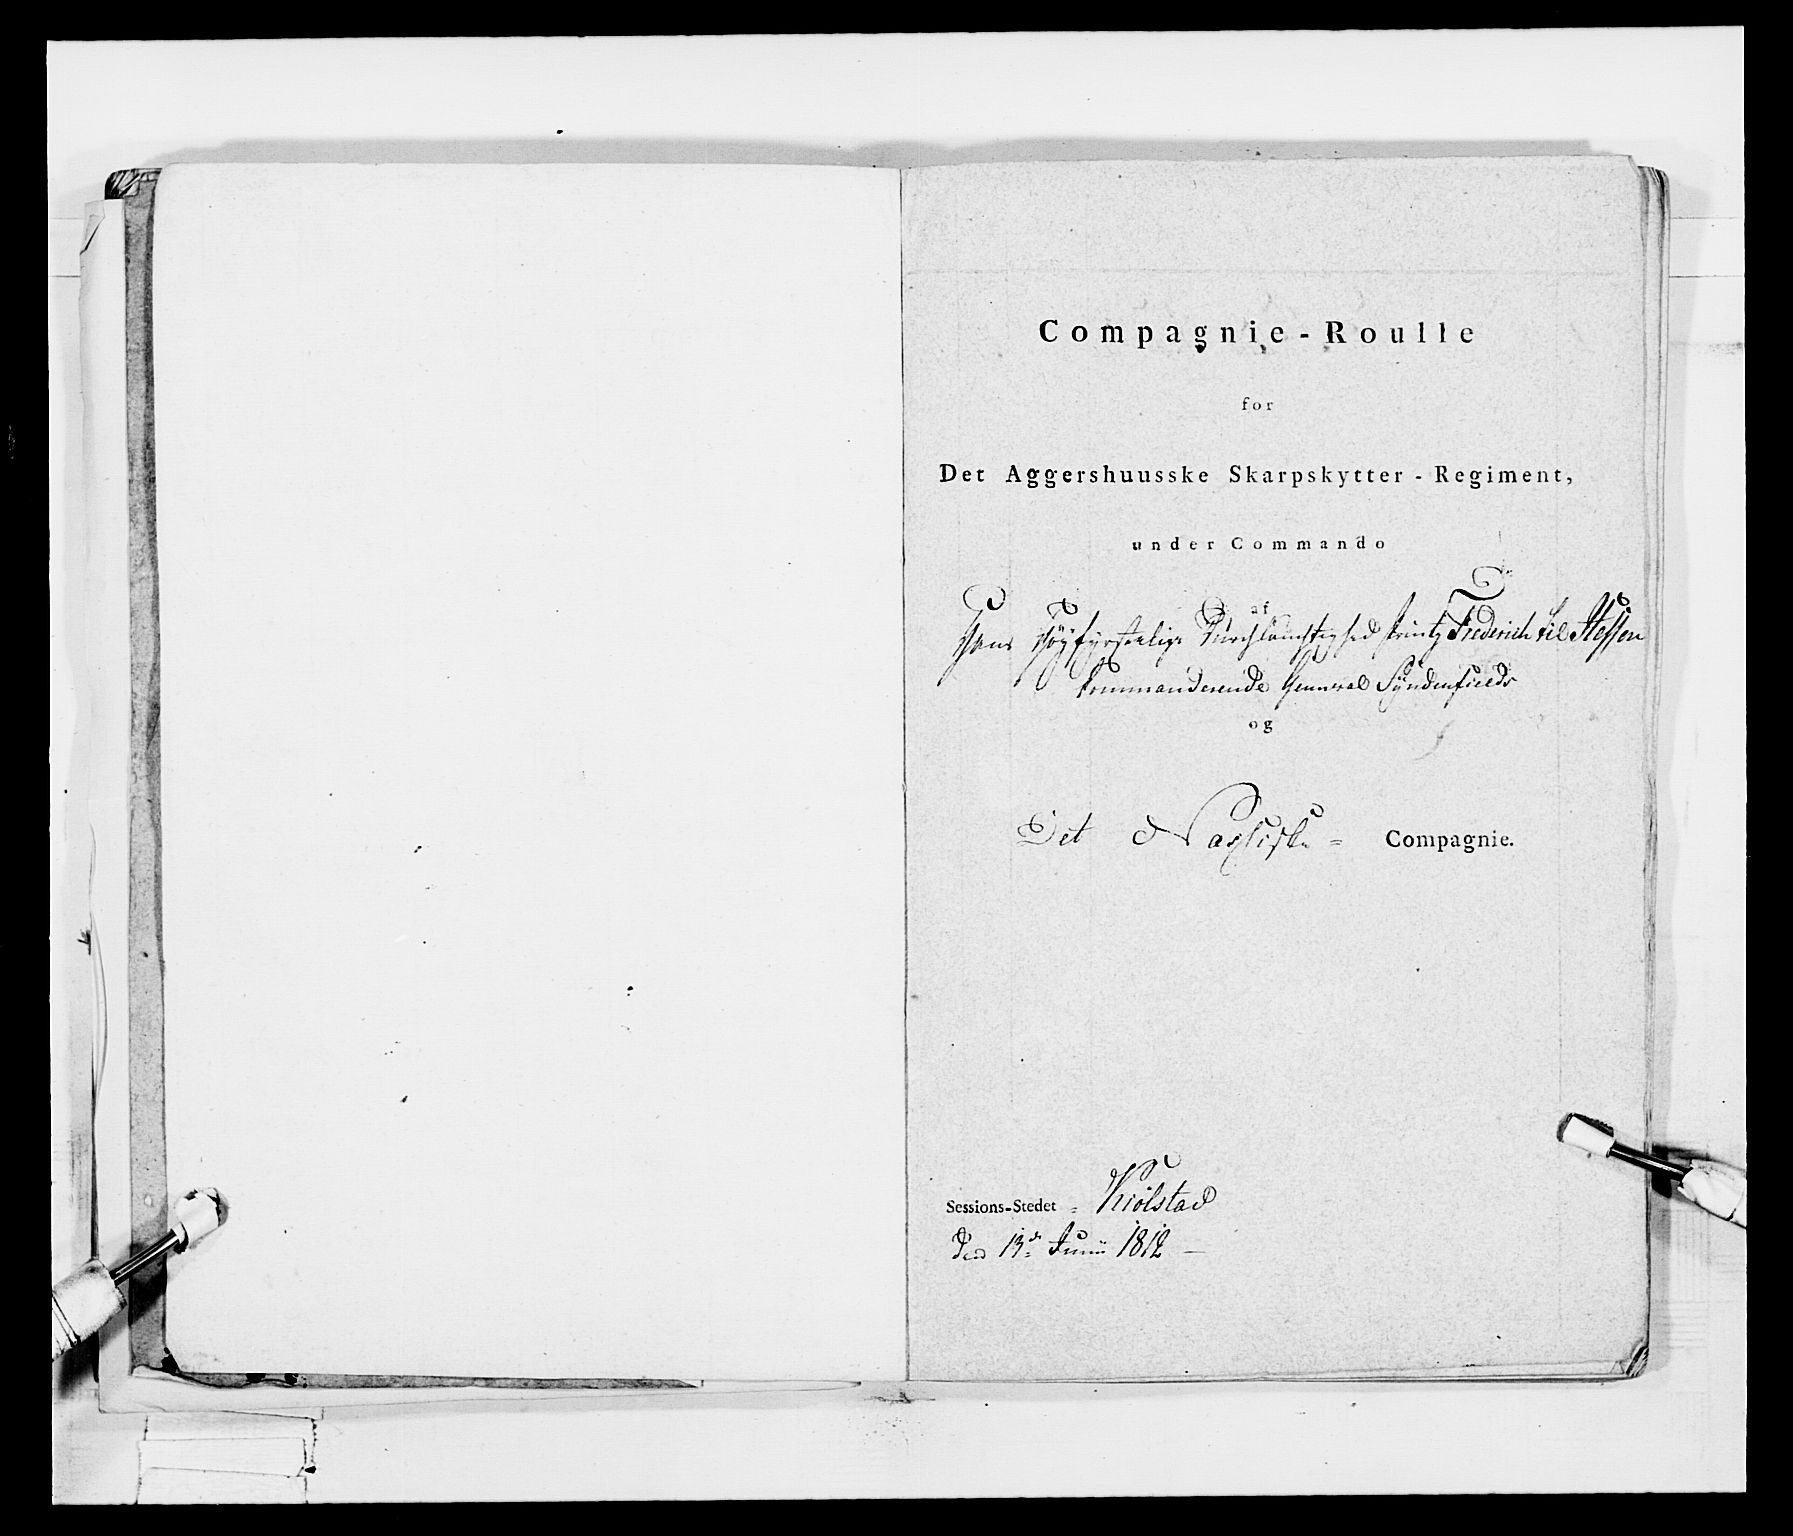 Compagnie-Roulle
for
Det Aggershuusske Skarpskytter-Regiment,
under Commando
af
Hans Höyfyrstelige Durchlauchtighed Printz Frederich til Hessen
kommanderende General Syndenfields
og
Det Næssiske = Compagnie.
Sessions-Stedet = Kiölstad
Den 13de Junii 1812 —